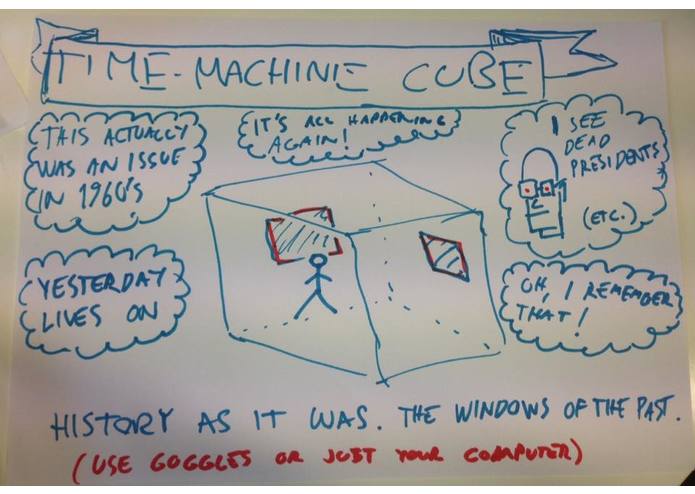 TIME-MACHINE CUBE
THIS ACTUALLY
WAS AN ISSUE
IN 1960'S
IT'S ALL HAPPENING
AGAIN!
I SEE
DEAD
PRESIDENTS
(ETC.)
YESTERDAY
LIVES ON
OH, I REMEMBER
THAT!
HISTORY AS IT WAS. THE WINDOWS OF THE PAST.
(USE GOGGLES OR JUST YOUR COMPUTER)